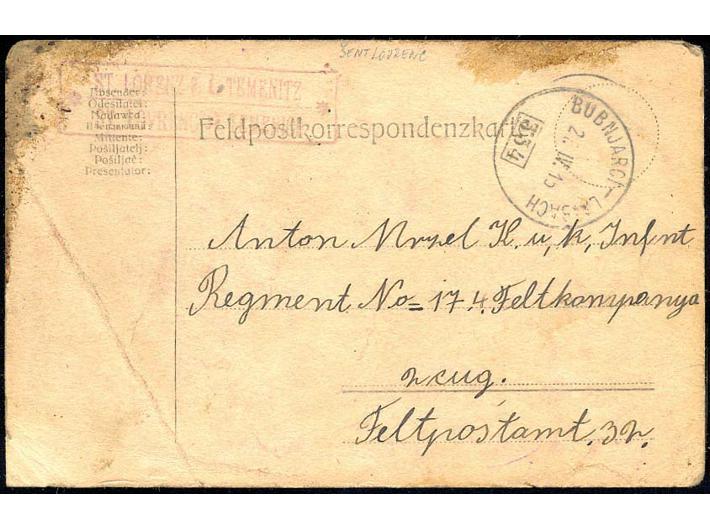 ŠENTLOVRENC
ST. LORENZ a. d. TEMENITZ
Absender:
Odesílatel:
Mittente:
Pošiljatelj:
Pošiljač:
Presentator:
Feldpostkorrespondenzkarte
BUBNJARCI-LAIBACH
2. IV 15
Anton Mrzel K. u, k, Infnt
Regment No= 17 4. Feltkompanya
2 cug.
Feltpostamt. 32.